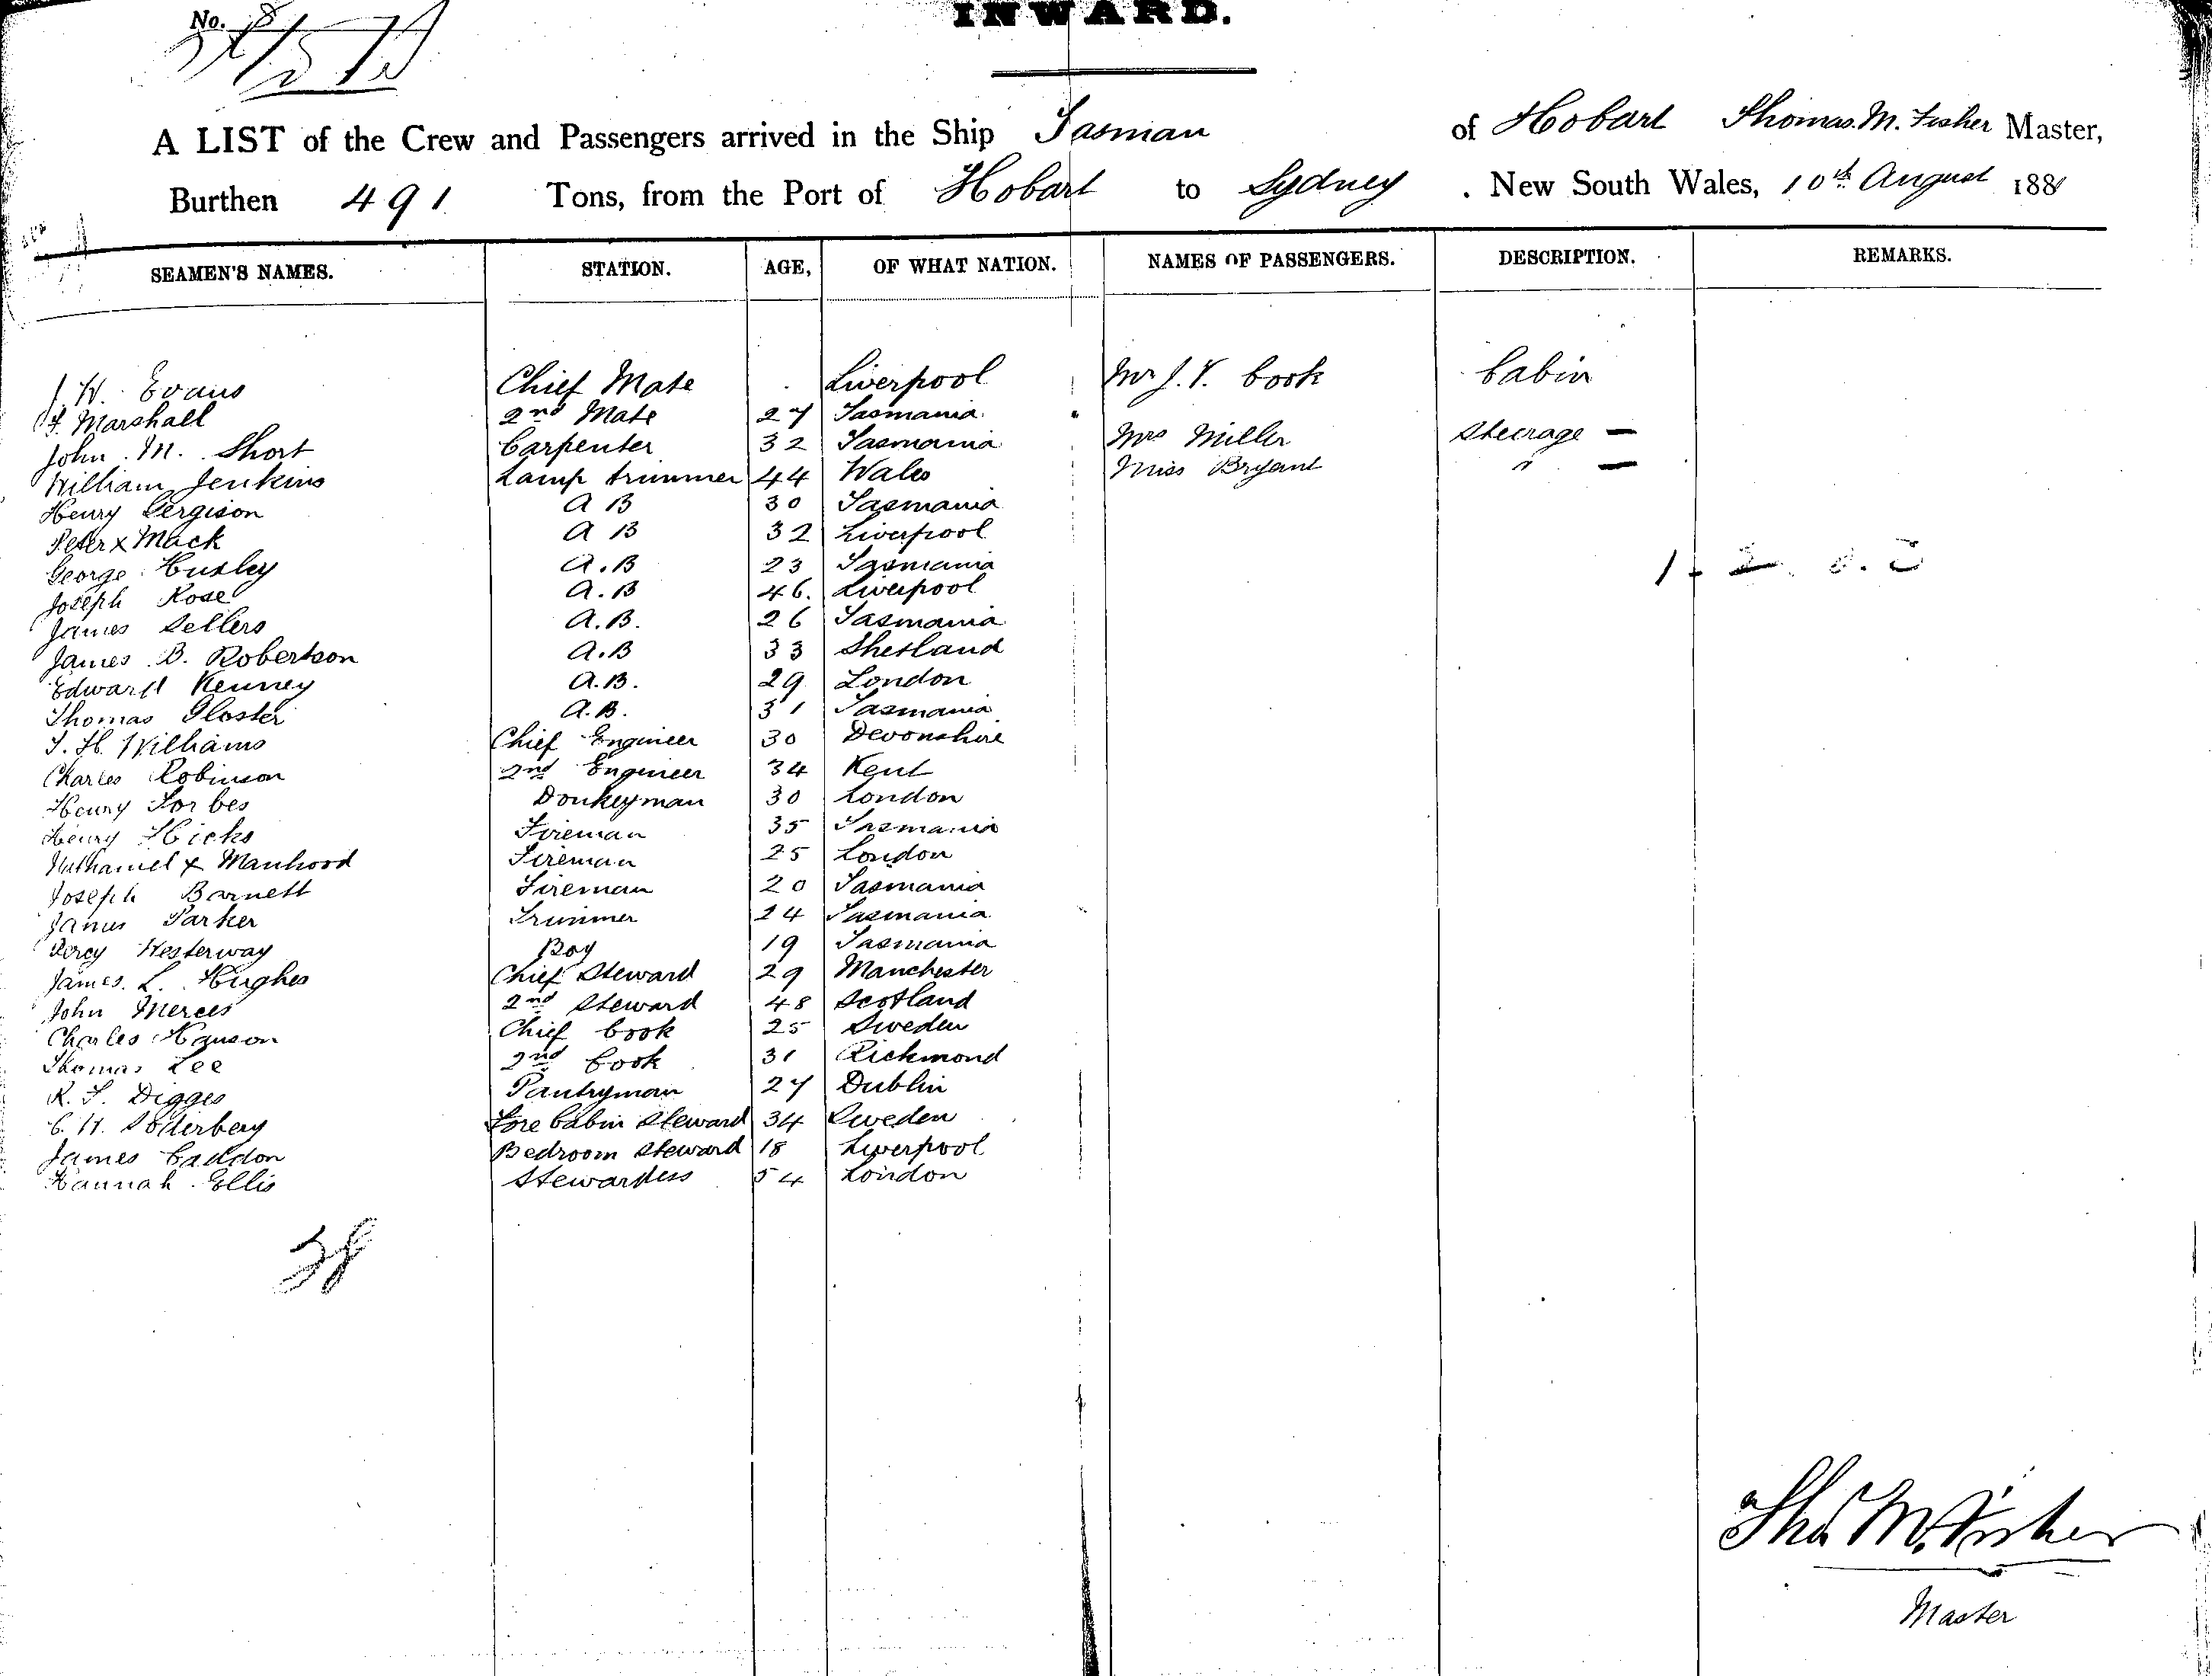 No.
INWARD.
A LIST of the Crew and Passengers arrived in the Ship Tasman of Hobart Thomas. M. Fisher Master,
Burthen 491 Tons, from the Port of Hobart to Sydney . New South Wales, 10th August 1881
SEAMEN'S NAMES. STATION. AGE, OF WHAT NATION. NAMES OF PASSENGERS. DESCRIPTION. REMARKS.
J. W. Evans Chief Mate Liverpool Mr J. Y. Cook Cabin
Marshall 2nd Mate 27 Tasmania
John M. Short Carpenter 32 Tasmania Mrs Miller Steerage —
William Jenkins Lamp trimmer 44 Wales Miss Bryant " —
Henry Sergison A B 30 Tasmania
Peter x Mack A B 32 Liverpool
George A.B 23 Tasmania
Joseph Rose A.B 46. Liverpool
James Sellers A.B. 26 Tasmania
James B. Robertson A.B 33 Shetland
Edward Kenney A.B. 29 London
Thomas Gloster A.B. 31 Tasmania
T. H. Williams Chief Engineer 30 Devonshire
Charles Robinson 2nd Engineer 34 Kent
Henry Forbes Donkeyman 30 London
Henry Hicks Fireman 35 Tasmania
Nathaniel x Manhood Fireman 25 London
Joseph Barnett Fireman 20 Tasmania
James Parker Trimmer 24 Tasmania
Percy Westerway Boy 19 Tasmania
James. L. Hughes Chief Steward 29 Manchester
John Mercer 2nd Steward 48 Scotland
Charles Hanson Chief Cook 25 Sweden
Thomas Lee 2nd Cook 31 Richmond
R. S. Digges Pantryman 27 Dublin
C. H. Söderberg Fore Cabin Steward 34 Sweden
James Caddon Bedroom Steward 18 Liverpool
Hannah Ellis Stewardess 54 London
28
Thos M. Fisher
Master